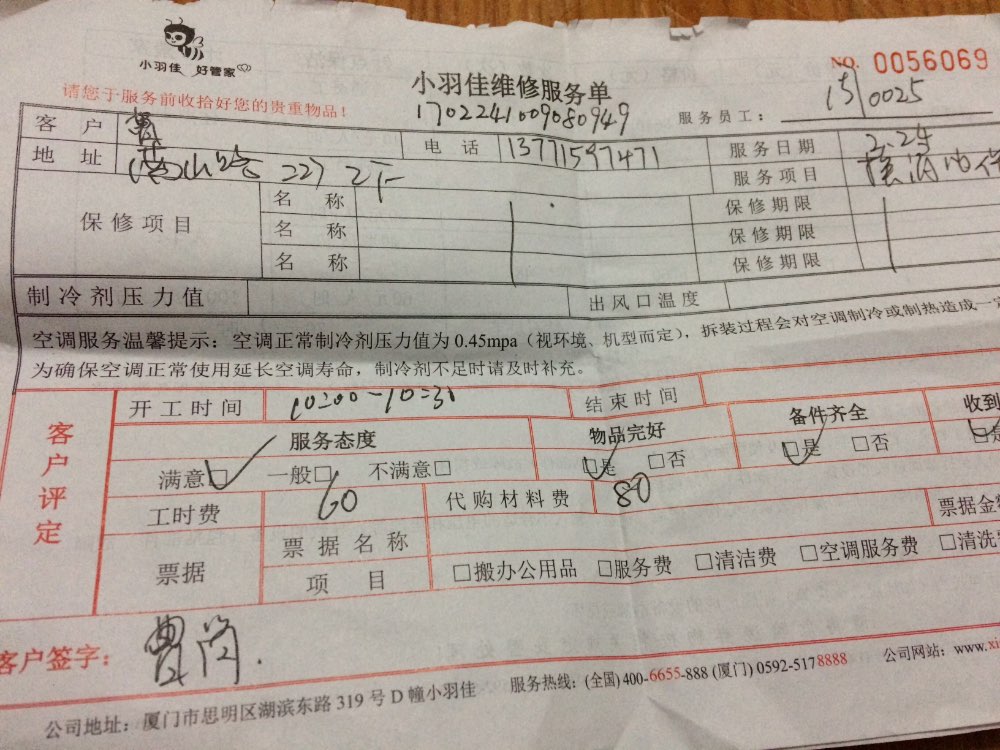 小羽佳 好管家
小羽佳维修服务单
NO. 0056069
请您于服务前收拾好您的贵重物品！
1702241009080949
服务员工： 0025
客户 曹
电话 13771597471
服务日期 2.24
地址 227
服务项目
保修项目
名称 保修期限
名称 保修期限
名称 保修期限
制冷剂压力值 出风口温度
空调服务温馨提示：空调正常制冷剂压力值为 0.45mpa（视环境、机型而定），拆装过程会对空调制冷或制热造成一
为确保空调正常使用延长空调寿命，制冷剂不足时请及时补充。
客户评定
开工时间 10:00-10:31 结束时间
服务态度 物品完好 备件齐全 收到
满意□ 一般□ 不满意□ □是 □否 □是 □否 □是
工时费 60 代购材料费 80
票据
票据名称 票据金
项目 □搬办公用品 □服务费 □清洁费 □空调服务费 □清洗
客户签字： 曹
公司地址：厦门市思明区湖滨东路 319 号 D 幢小羽佳 服务热线：(全国) 400-6655-888 (厦门) 0592-5178888 公司网站：www.xi